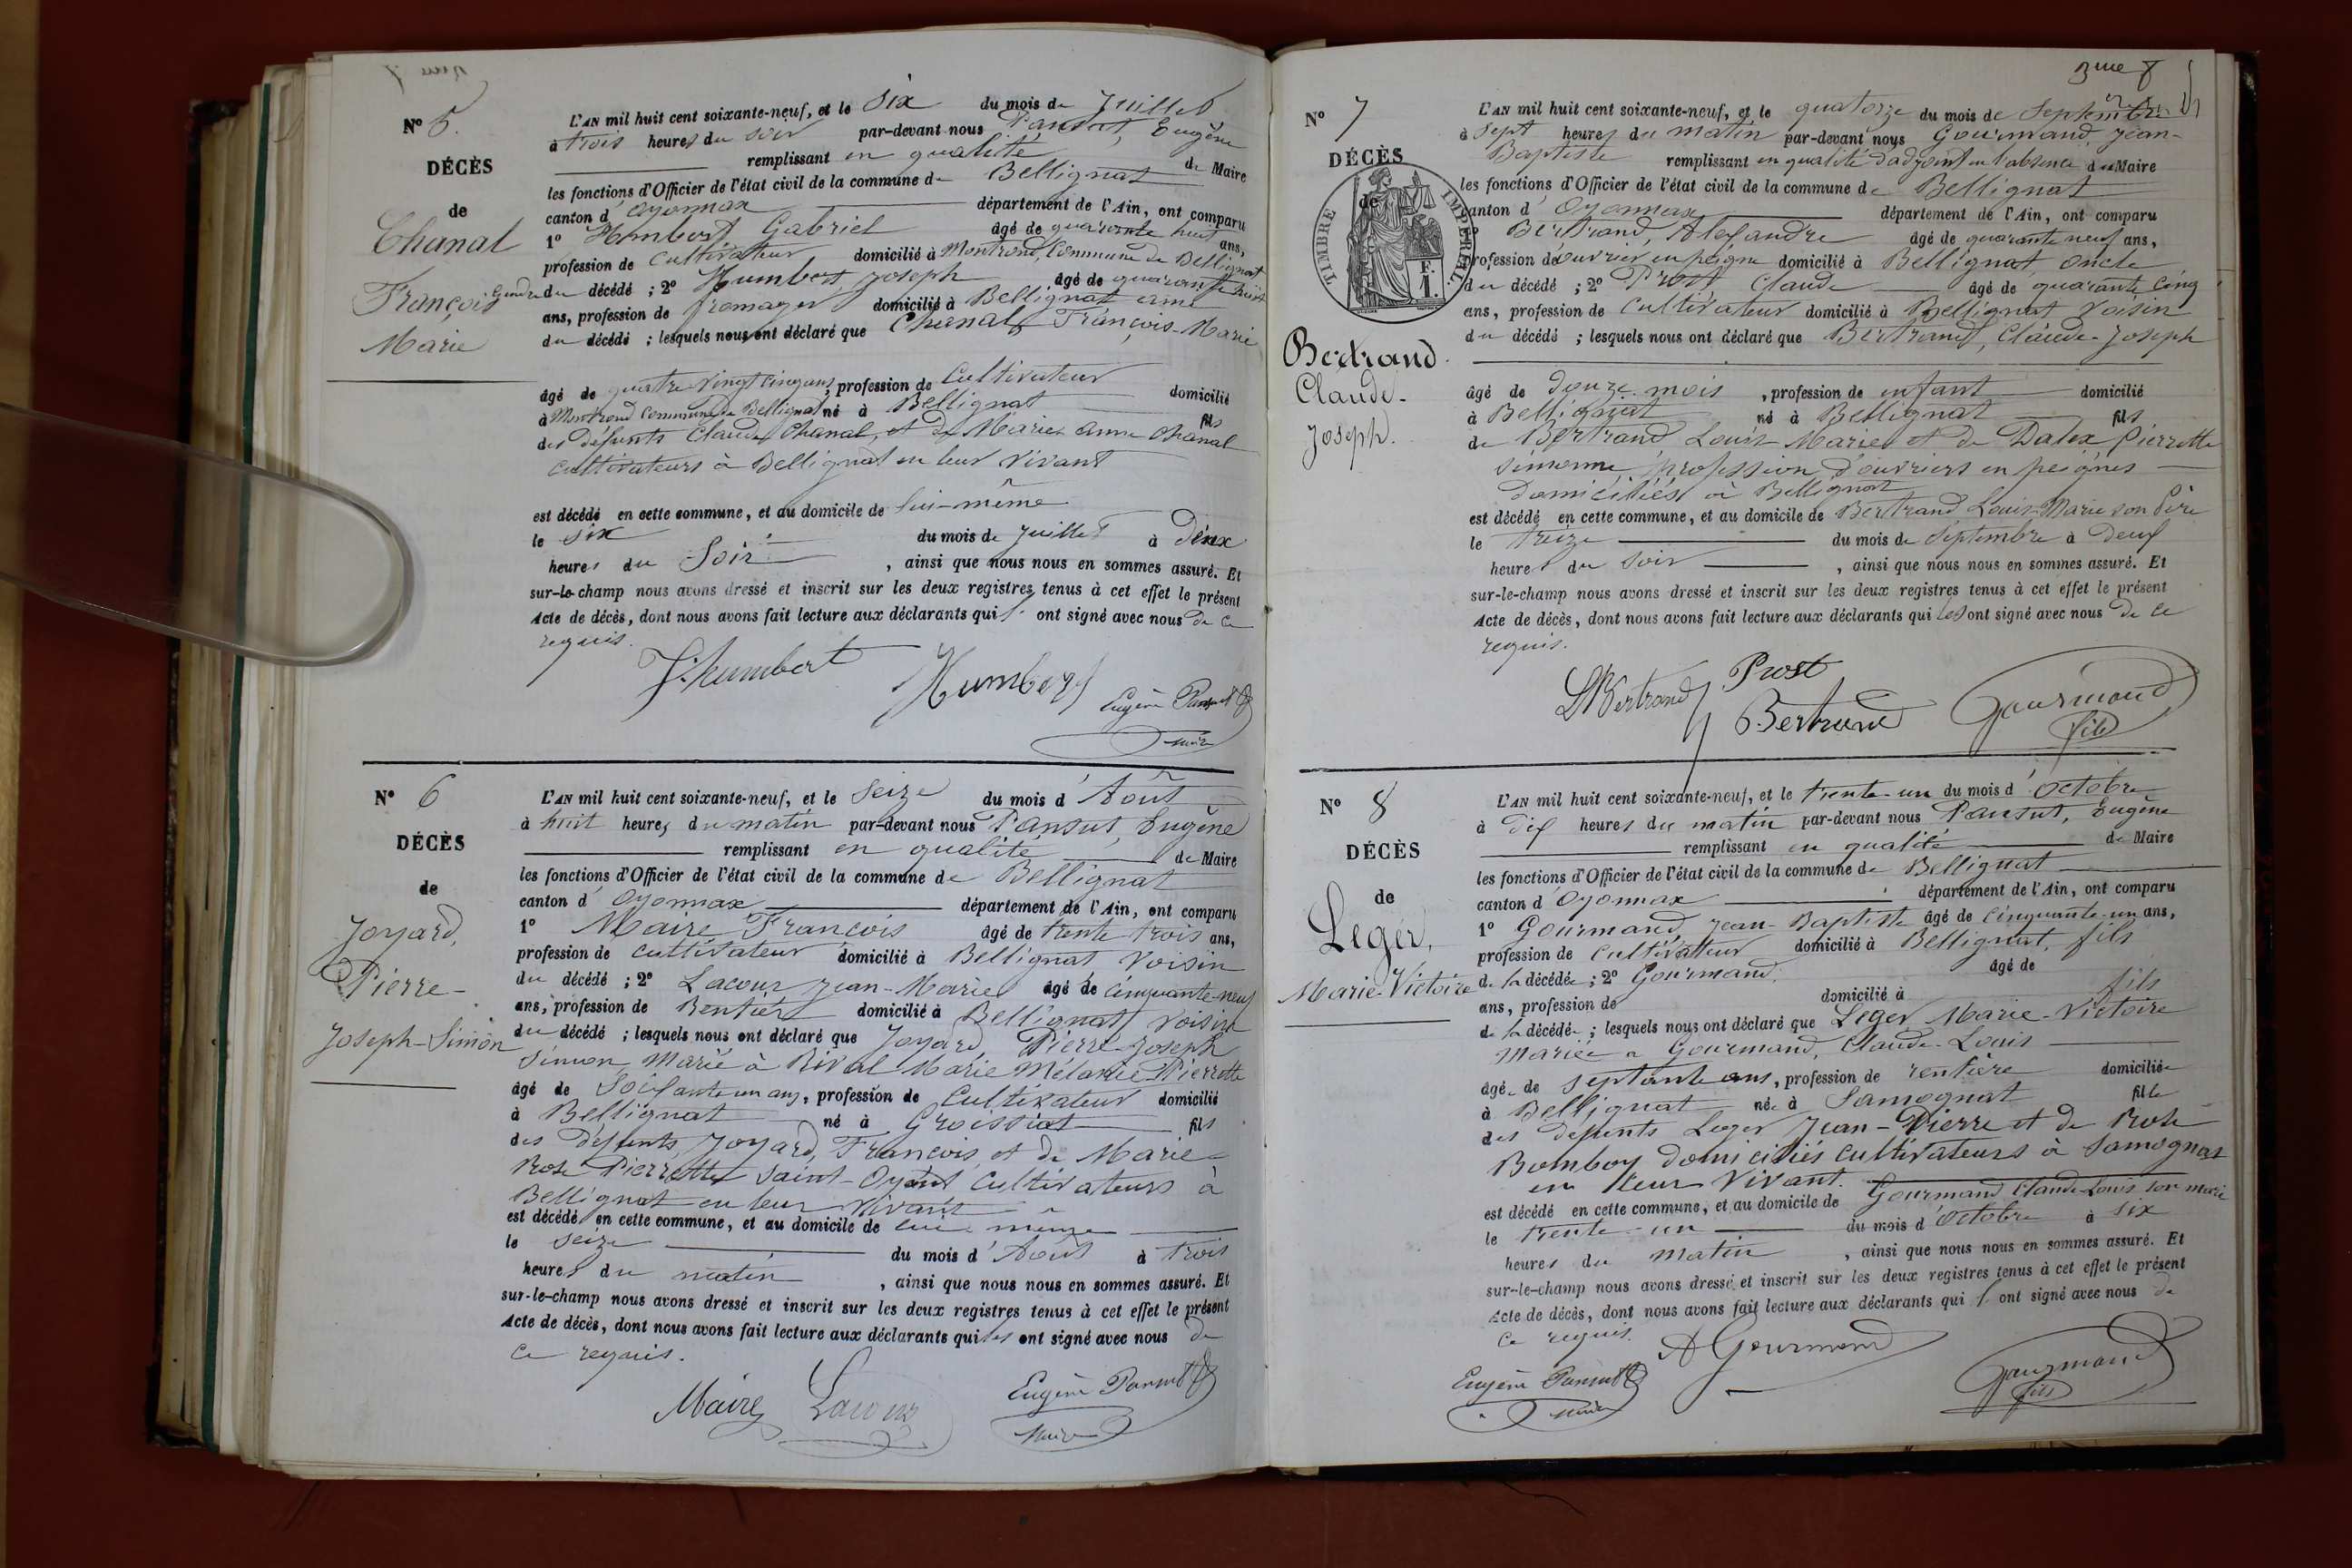 N° 5.
DÉCÈS
de
Chanal
François
Marie
L'AN mil huit cent soixante-neuf, et le six du mois de Juillet
à trois heures du soir par-devant nous Pansut, Eugène
remplissant en qualité de Maire
les fonctions d'Officier de l'état civil de la commune de Bellignat
canton d'Oyonnax département de l'Ain, ont comparu
1° Humbert Gabriel âgé de quarante huit ans,
profession de cultivateur domicilié à Montrond, Commune de Bellignat
Gendre du décédé ; 2° Humbert Joseph âgé de quarante huit
ans, profession de fromager domicilié à Bellignat ami
du décédé ; lesquels nous ont déclaré que Chanal François-Marie
âgé de quatre vingt cinq ans, profession de Cultivateur domicilié
à Montrond Commune de Bellignat né à Bellignat fils
des défunts Claude Chanal, et de Marie Anne Chanal
cultivateurs à Bellignat en leur vivant
est décédé en cette commune, et au domicile de lui-même
le six du mois de Juillet à Deux
heures du Soir, ainsi que nous nous en sommes assuré. Et
sur-le-champ nous avons dressé et inscrit sur les deux registres tenus à cet effet le présent
Acte de décès, dont nous avons fait lecture aux déclarants qui ont signé avec nous de ce
requis.
J. humbert Humbert Eugène Pansut
maire
N° 6
DÉCÈS
de
Joyard,
Pierre-
Joseph-Simon
L'AN mil huit cent soixante-neuf, et le seize du mois d'Août
à huit heures du matin par-devant nous Pansut, Eugène
remplissant en qualité de Maire
les fonctions d'Officier de l'état civil de la commune de Bellignat
canton d'Oyonnax département de l'Ain, ont comparu
1° Maire François âgé de trente trois ans,
profession de cultivateur domicilié à Bellignat Voisin
du décédé ; 2° Lacour Jean-Marie âgé de cinquante-neuf
ans, profession de Rentier domicilié à Bellignat Voisin
du décédé ; lesquels nous ont déclaré que Joyard Pierre-Joseph
Simon Marié à Rival Marie Mélanie Pierrette
âgé de Soixante un ans, profession de Cultivateur domicilié
à Bellignat né à Groissiat fils
des défunts Joyard, François et de Marie-
Rose Pierrette Saint-Oyant Cultivateurs à
Bellignat en leur vivant
est décédé en cette commune, et au domicile de lui même
le seize du mois d'Août à trois
heures du matin, ainsi que nous nous en sommes assuré. Et
sur-le-champ nous avons dressé et inscrit sur les deux registres tenus à cet effet le présent
Acte de décès, dont nous avons fait lecture aux déclarants qui les ont signé avec nous de
ce requis.
Maire Lacour Eugène Pansut
maire
3me f
N° 7
DÉCÈS
de
TIMBRE IMPÉRIAL
F.
1.
Bertrand
Claude-
Joseph.
L'AN mil huit cent soixante-neuf, et le quatorze du mois de Septembre
à sept heures du matin par-devant nous Gourmand Jean-
Baptiste remplissant en qualité d'adjoint en l'absence du Maire
les fonctions d'Officier de l'état civil de la commune de Bellignat
canton d'Oyonnax département de l'Ain, ont comparu
Bertrand, Alexandre âgé de quarante neuf ans,
profession d'ouvrier en peigne domicilié à Bellignat oncle
du décédé ; 2° Prost Claude âgé de quarante cinq
ans, profession de Cultivateur domicilié à Bellignat Voisin
du décédé ; lesquels nous ont déclaré que Bertrand, Claude-Joseph
âgé de douze mois, profession de enfant domicilié
à Bellignat né à Bellignat fils
de Bertrand Louis-Marie et de Dalex Pierrette
Simonne, profession d'ouvriers en peignes
domiciliés à Bellignat
est décédé en cette commune, et au domicile de Bertrand Louis-Marie son Père
le treize du mois de Septembre à deux
heures du soir, ainsi que nous nous en sommes assuré. Et
sur-le-champ nous avons dressé et inscrit sur les deux registres tenus à cet effet le présent
Acte de décès, dont nous avons fait lecture aux déclarants qui les ont signé avec nous de ce
requis.
Bertrand Prost
Bertrand Gourmand
fils
N° 8
DÉCÈS
de
Leger,
Marie-Victoire
L'AN mil huit cent soixante-neuf, et le trente-un du mois d'octobre
à dix heures du matin par-devant nous Pansut, Eugène
remplissant en qualité de Maire
les fonctions d'Officier de l'état civil de la commune de Bellignat
canton d'Oyonnax département de l'Ain, ont comparu
1° Gourmand, Jean-Baptiste âgé de cinquante-un ans,
profession de Cultivateur domicilié à Bellignat, fils
de la décédée ; 2° Gourmand âgé de
ans, profession de domicilié à fils
de la décédée ; lesquels nous ont déclaré que Leger Marie-Victoire
Mariée à Gourmand, Claude-Louis
âgé de septante ans, profession de rentière domiciliée
à Bellignat née à Samognat fille
des défunts Leger Jean-Pierre et de Rose
Bomboy domiciliés cultivateurs à Samognat
en leur Vivant.
est décédé en cette commune, et au domicile de Gourmand Claude-Louis son mari
le trente-un du mois d'octobre à six
heures du matin, ainsi que nous nous en sommes assuré. Et
sur-le-champ nous avons dressé et inscrit sur les deux registres tenus à cet effet le présent
Acte de décès, dont nous avons fait lecture aux déclarants qui ont signé avec nous de
ce requis.
Eugène Pansut A Gourmand Gourmand
maire fils